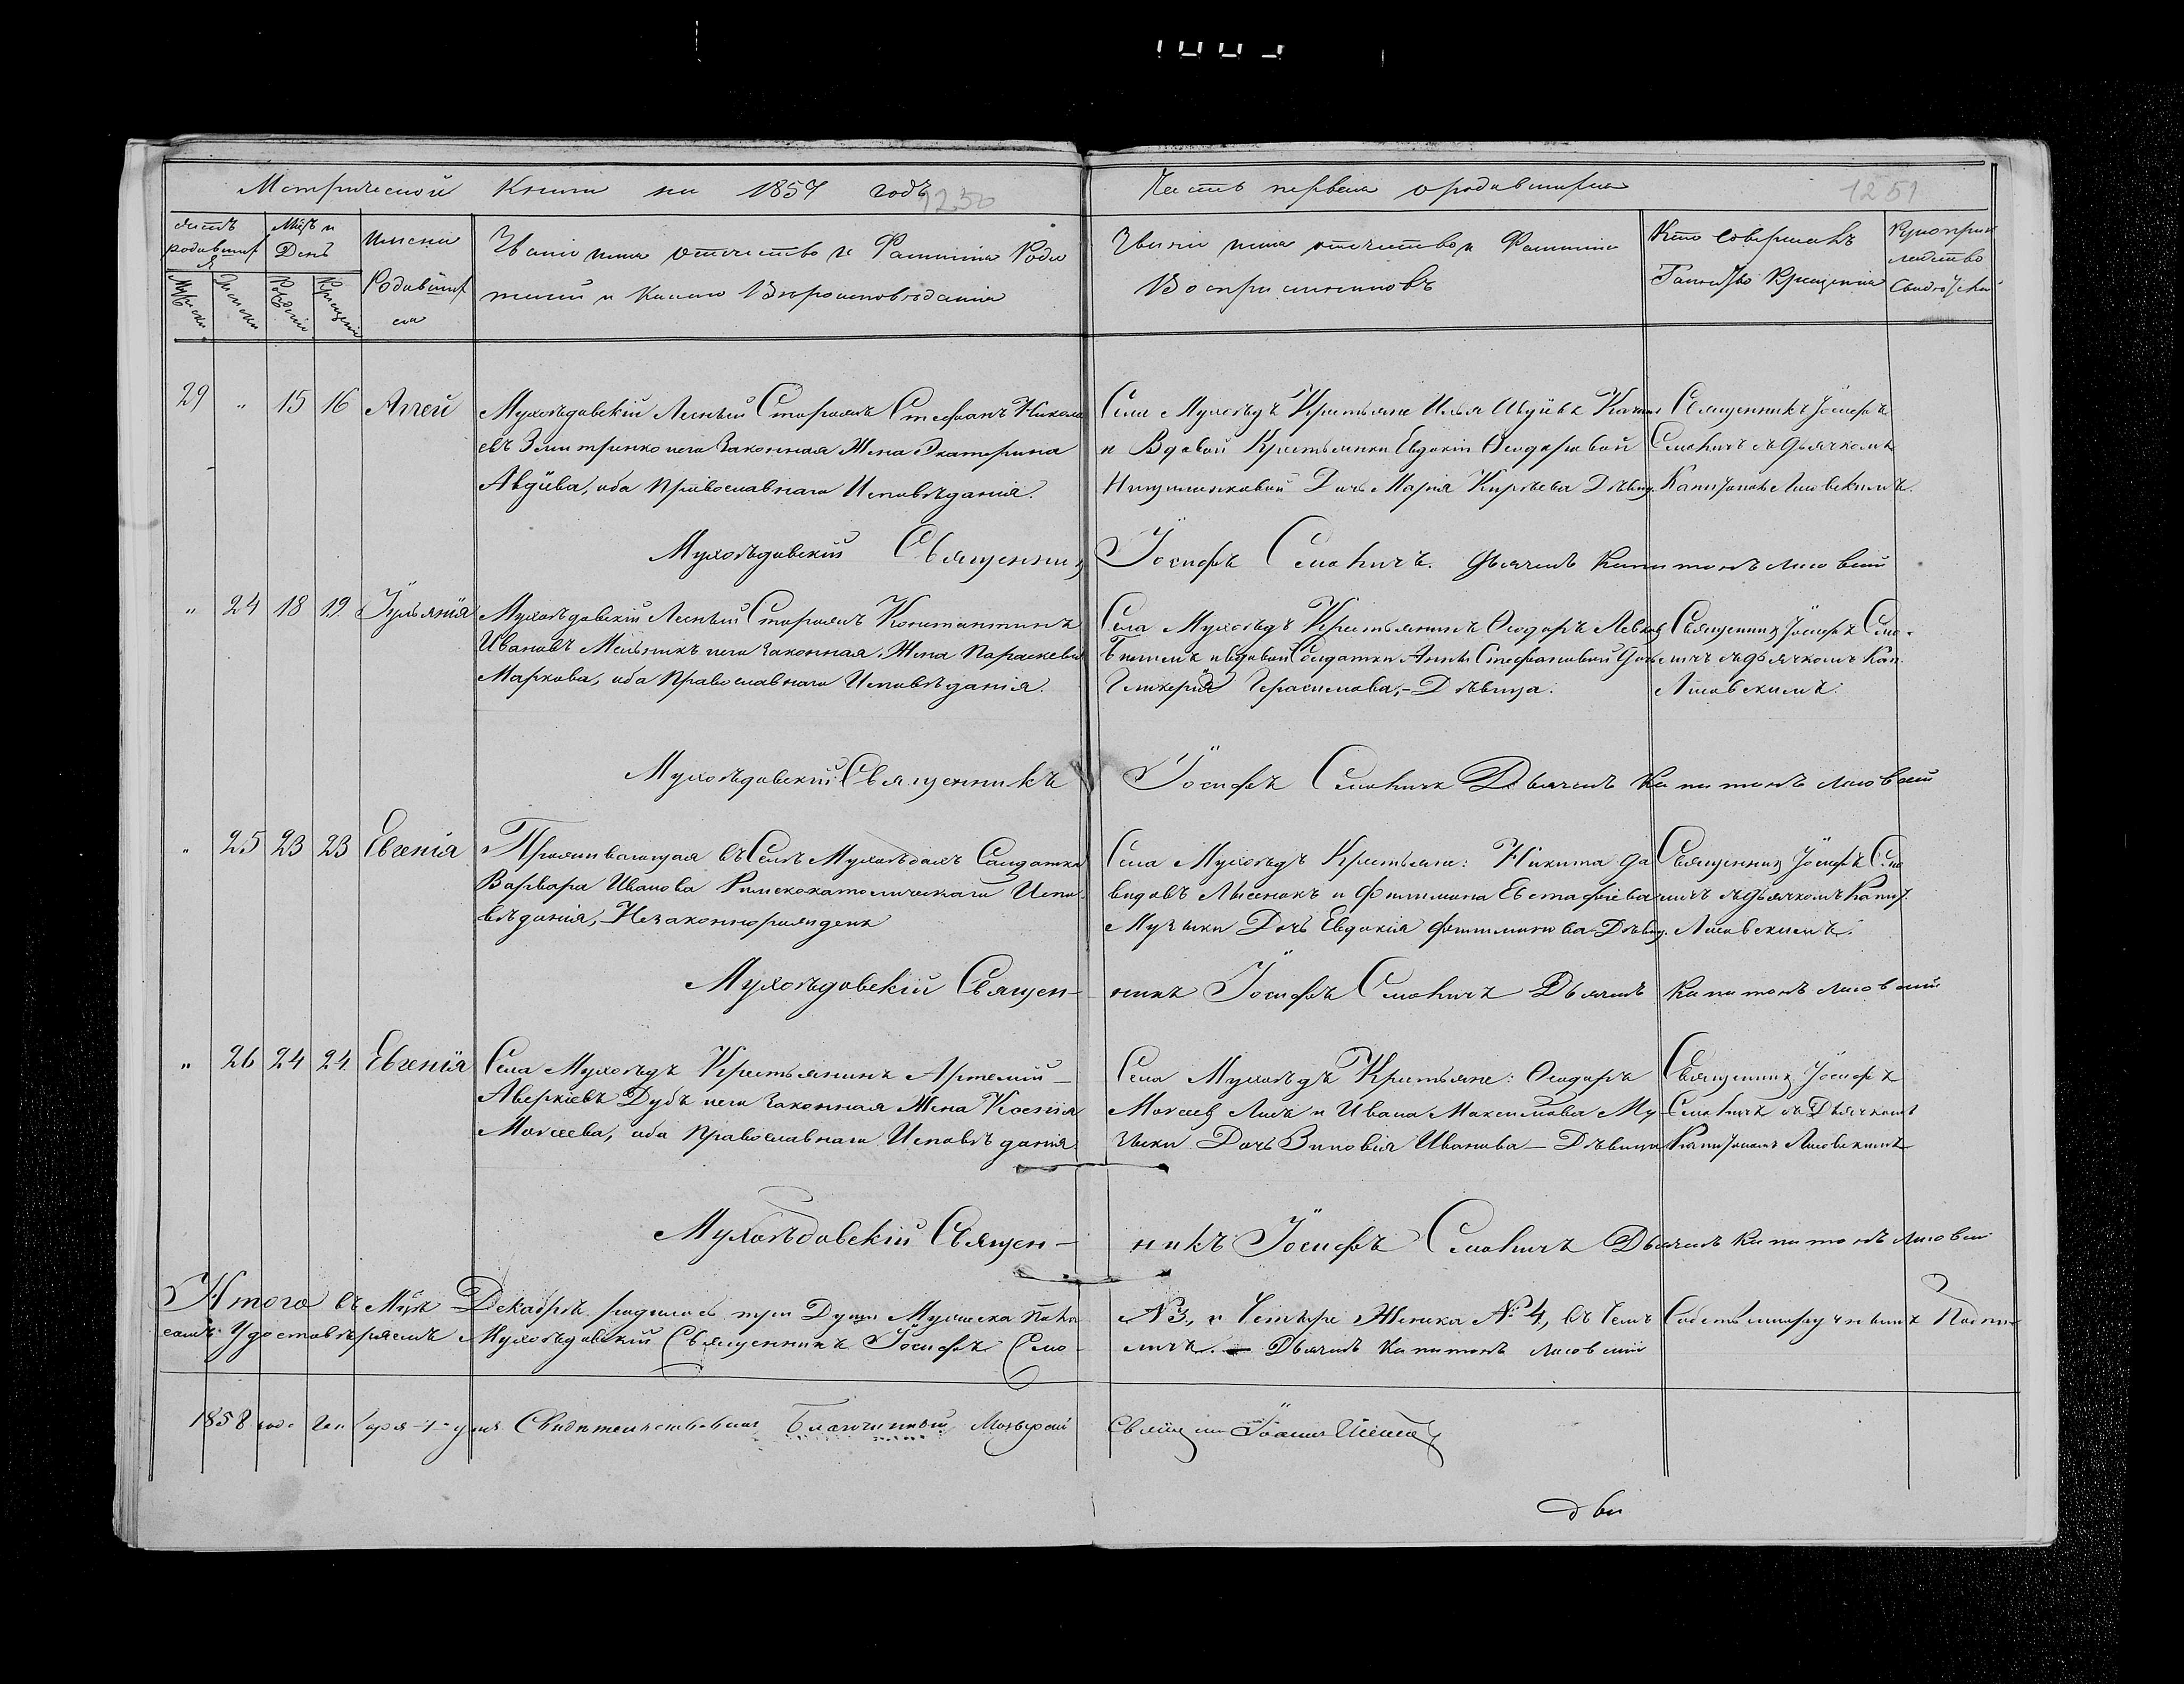 Метрической Книги на 1857 годъ 1250
Часть первая о родившихся 1251
Счетъ родившихся
Мужеска
Женска
Мцъ и День
Рожденiя
Крещенiя
Имена Родившихся
Званiе имя отечество и Фамилiя Роди
телей и какого Вероисповѣданiя
Званiе имя отечество и Фамилiя
Воспрiемниковъ
Кто Совершалъ
Таинство Крещенiя
Рукоприк
ладство
29 " 15 16 Аггей
Мухоѣдовскiй Лесный Сторожъ Стефанъ Никола
евъ Змитренко и его Законная Жена Екатерина
Авдiева, оба Православнаго Исповѣданiя.
Села Мухоѣдъ Крестьяне Илья Авдiевъ
и Вдовой Крестьянки Евдокiи Ѳеодоровой
Дочь Марiя Кирѣева Дѣвиц.
Священникъ Iосифъ
Смоличъ съ Дьячкомъ
Капитономъ Лисовскимъ.
Мухоѣдовскiй Священник Iосифъ Смоличъ. Дьячекъ Капитонъ Лисовскiй
" 24 18 19 Iульянiя
Мухоѣдовскiй Лесный Сторожъ Константинъ
Ивановъ Мельникъ и его Законная Жена Параскевiя
Маркова, оба Православнаго Исповѣданiя.
Села Мухоѣдъ Крестьянинъ Ѳеодоръ
и вдовой Солдатки Анны Стефановой Дочь
Гликерiя Герасимова, - Дѣвица.
Священник Iосифъ Смо-
личъ съ Дьячкомъ Кап.
Лисовскимъ.
Мухоѣдовскiй Священникъ Iосифъ Смоличъ Дьячекъ Капитонъ Лисовскiй
" 25 23 23 Евгенiя
Проживающая въ Селѣ Мухоѣдахъ Салдатка
Варвара Иванова Римскокатолическаго Испо-
вѣданiя, Незаконнорожденъ
Села Мухоѣдъ Крестьяне: Никита Да
видовъ Лисенокъ и Филимона Евстафiева
Музыки Дочь Евдокiя Филимонова Дѣвиц.
Священник Iосифъ Смо
личъ съ Дьячкомъ Капит.
Лисовскимъ.
Мухоѣдовскiй Священ- никъ Iосифъ Смоличъ Дьячекъ Капитонъ Лисовскiй
" 26 24 24 Евгенiя
Села Мухоѣдъ Крестьянинъ Артемiй -
Аверкiевъ Дубъ и его Законная Жена Ксенiя
Моисеева, оба Православнаго Исповѣданiя.
Села Мухоѣдъ Крестьяне: Ѳеодоръ
Моисеев Лисъ и Ивана Максимова Му-
зыки Дочь Зиновiя Иванова - Дѣвица
Священник Iосифъ
Смоличъ съ Дьячкомъ
Капитономъ Лисовскимъ
Мухоѣдовскiй Священ- никъ Iосифъ Смоличъ Дьячекъ Капитонъ Лисовскiй
Итого въ Мцѣ Декабрѣ родилось три Души Мужеска Пола № 3, и Четыре Женска № 4, въ Чемъ Собственноручнымъ Подпи-
сомъ Удостовѣряемъ Мухоѣдовскiй Священникъ Iосифъ Смо- личъ. - Дьячекъ Капитонъ Лисовскiй
1858 года Генваря дня Свидетельствовалъ Благочинный Мозырскiй Священ Iоаннъ